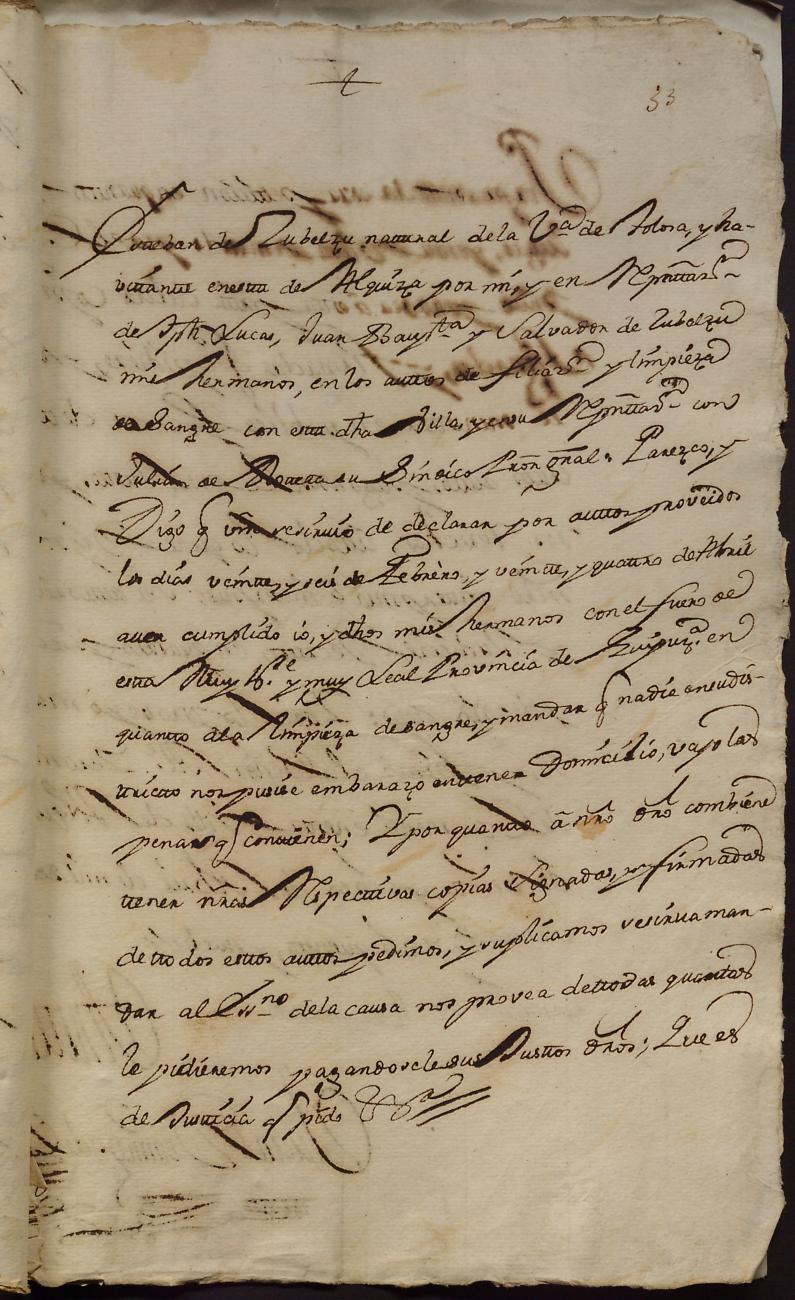 33
Esteban de Zubelzu natural de la V.ª de Tolosa, y ha-
vitante en esta de Alquiza por mi, y en Rpnttaz.on
de Jph. Lucas, Juan Baup.ta y Salvador de Zubelzu
mis hermanos, en los auttos de filiaz.on y limpieza
de Sangre con esta dha Villa, y en su Rpnttaz.on con
Julian de su Sindico Pror. gñal: Parezco, y
Digo q vm se sirvio de declarar por auttos proveidos
los dias veinte, y seis de Febrero, y veinte, y quattro de Abril
aver cumplido io, y dhos mis hermanos con el fuero de
esta Muy N.e y muy Leal Provincia de Guipuz.a en
quanto a la limpieza de sangre, y mandar q nadie en su dis-
tricto nos pusiese embarazo en tener Domicilio, vajo las
penas q contienen; Y por quanto a nro dro combiene
tener nras Respectivas copias signadas, y firmadas
de todos estos auttos pedimos, y suplicamos se sirva man-
dar al Ess.no de la causa nos provea de ttodas quantas
le pidieremos pagandosele sus Justtos dros; Que es
de Justicia q pido